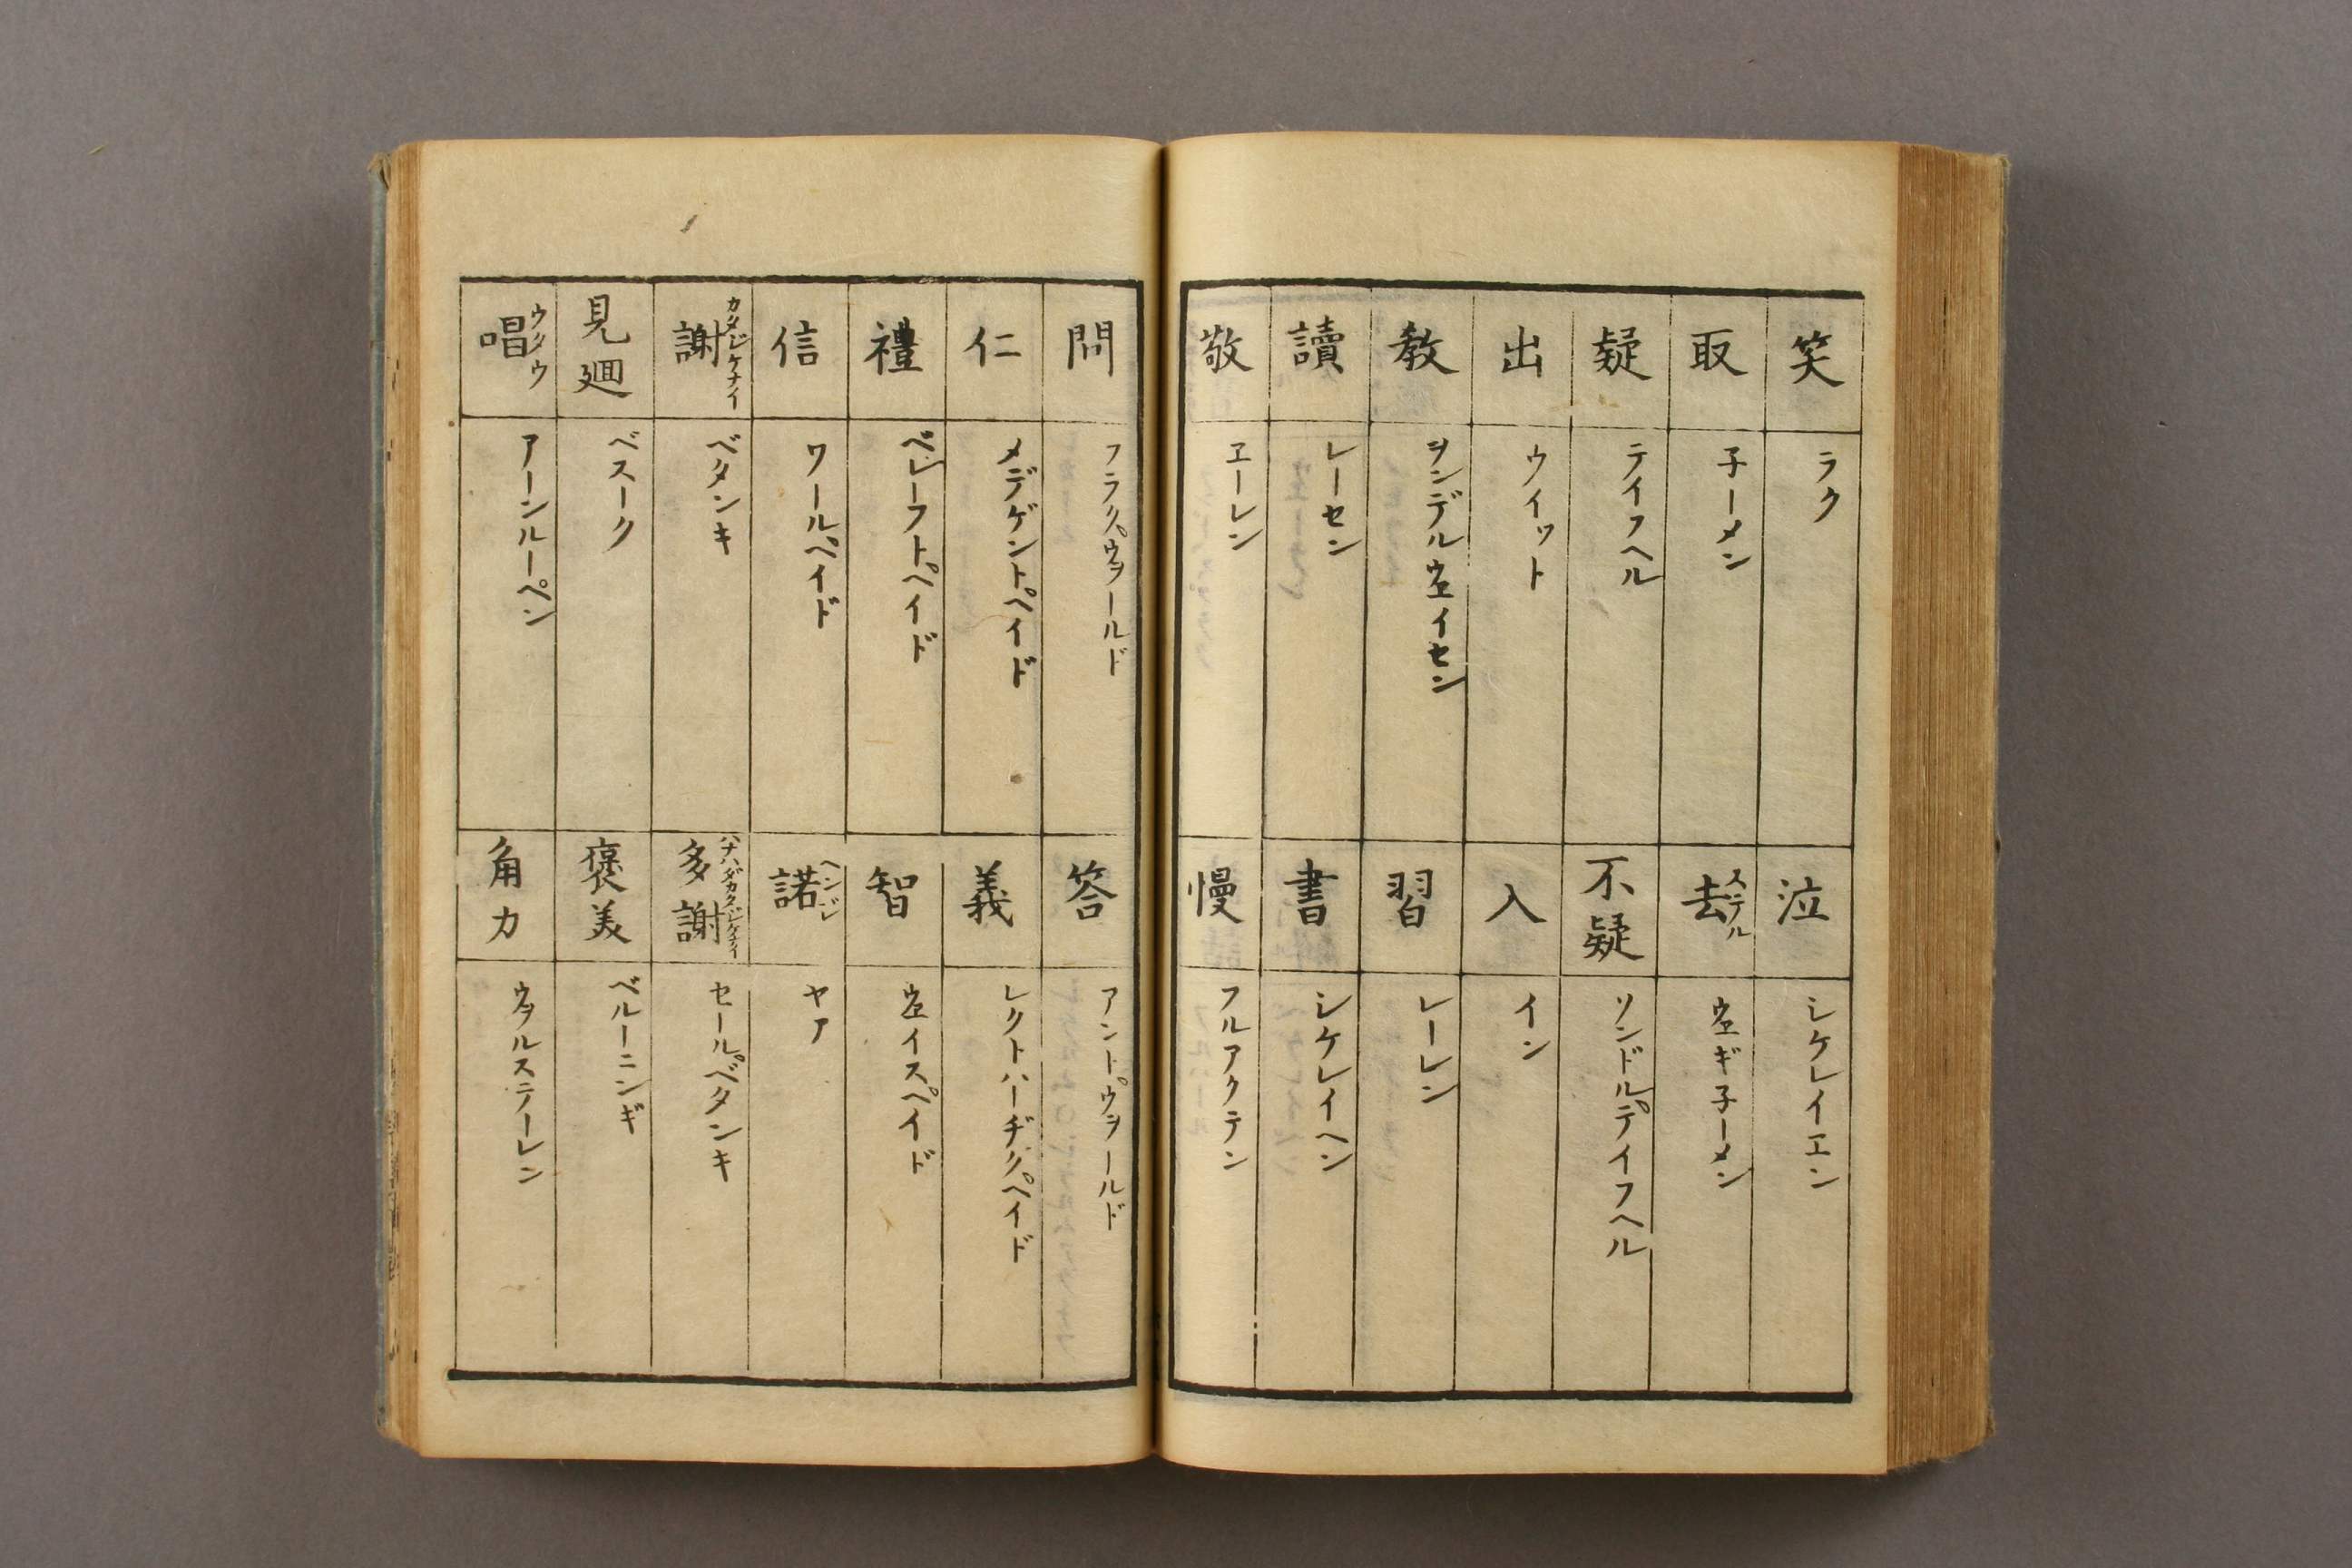 笑 ラク
泣 シケレイエン
取 子ーメン
去 ステル ウエギ子ーメン
疑 テイフヘル
不疑 ソンドルテイフヘル
出 ウイット
入 イン
教 ヲンデルウエイセン
習 レーレン
讀 レーセン
書 シケレイヘン
敬 ヱーレン
慢 フルアクテン
問 フラクウヲールド
答 アントウヲールド
仁 メデゲントヘイド
義 レクトハーヂクヘイド
禮 ベレーフトヘイド
智 ウエイスヘイド
信 ワールヘイド
諾 ヘンジ ヤア
謝 カタジケナイ ベタンキ
多謝 ハナハダカタジケナイ セールベタンキ
見廻 ベスーク
褒美 ベルーニンギ
唱 ウタウ アーンルーペン
角力 ウヲルステーレン